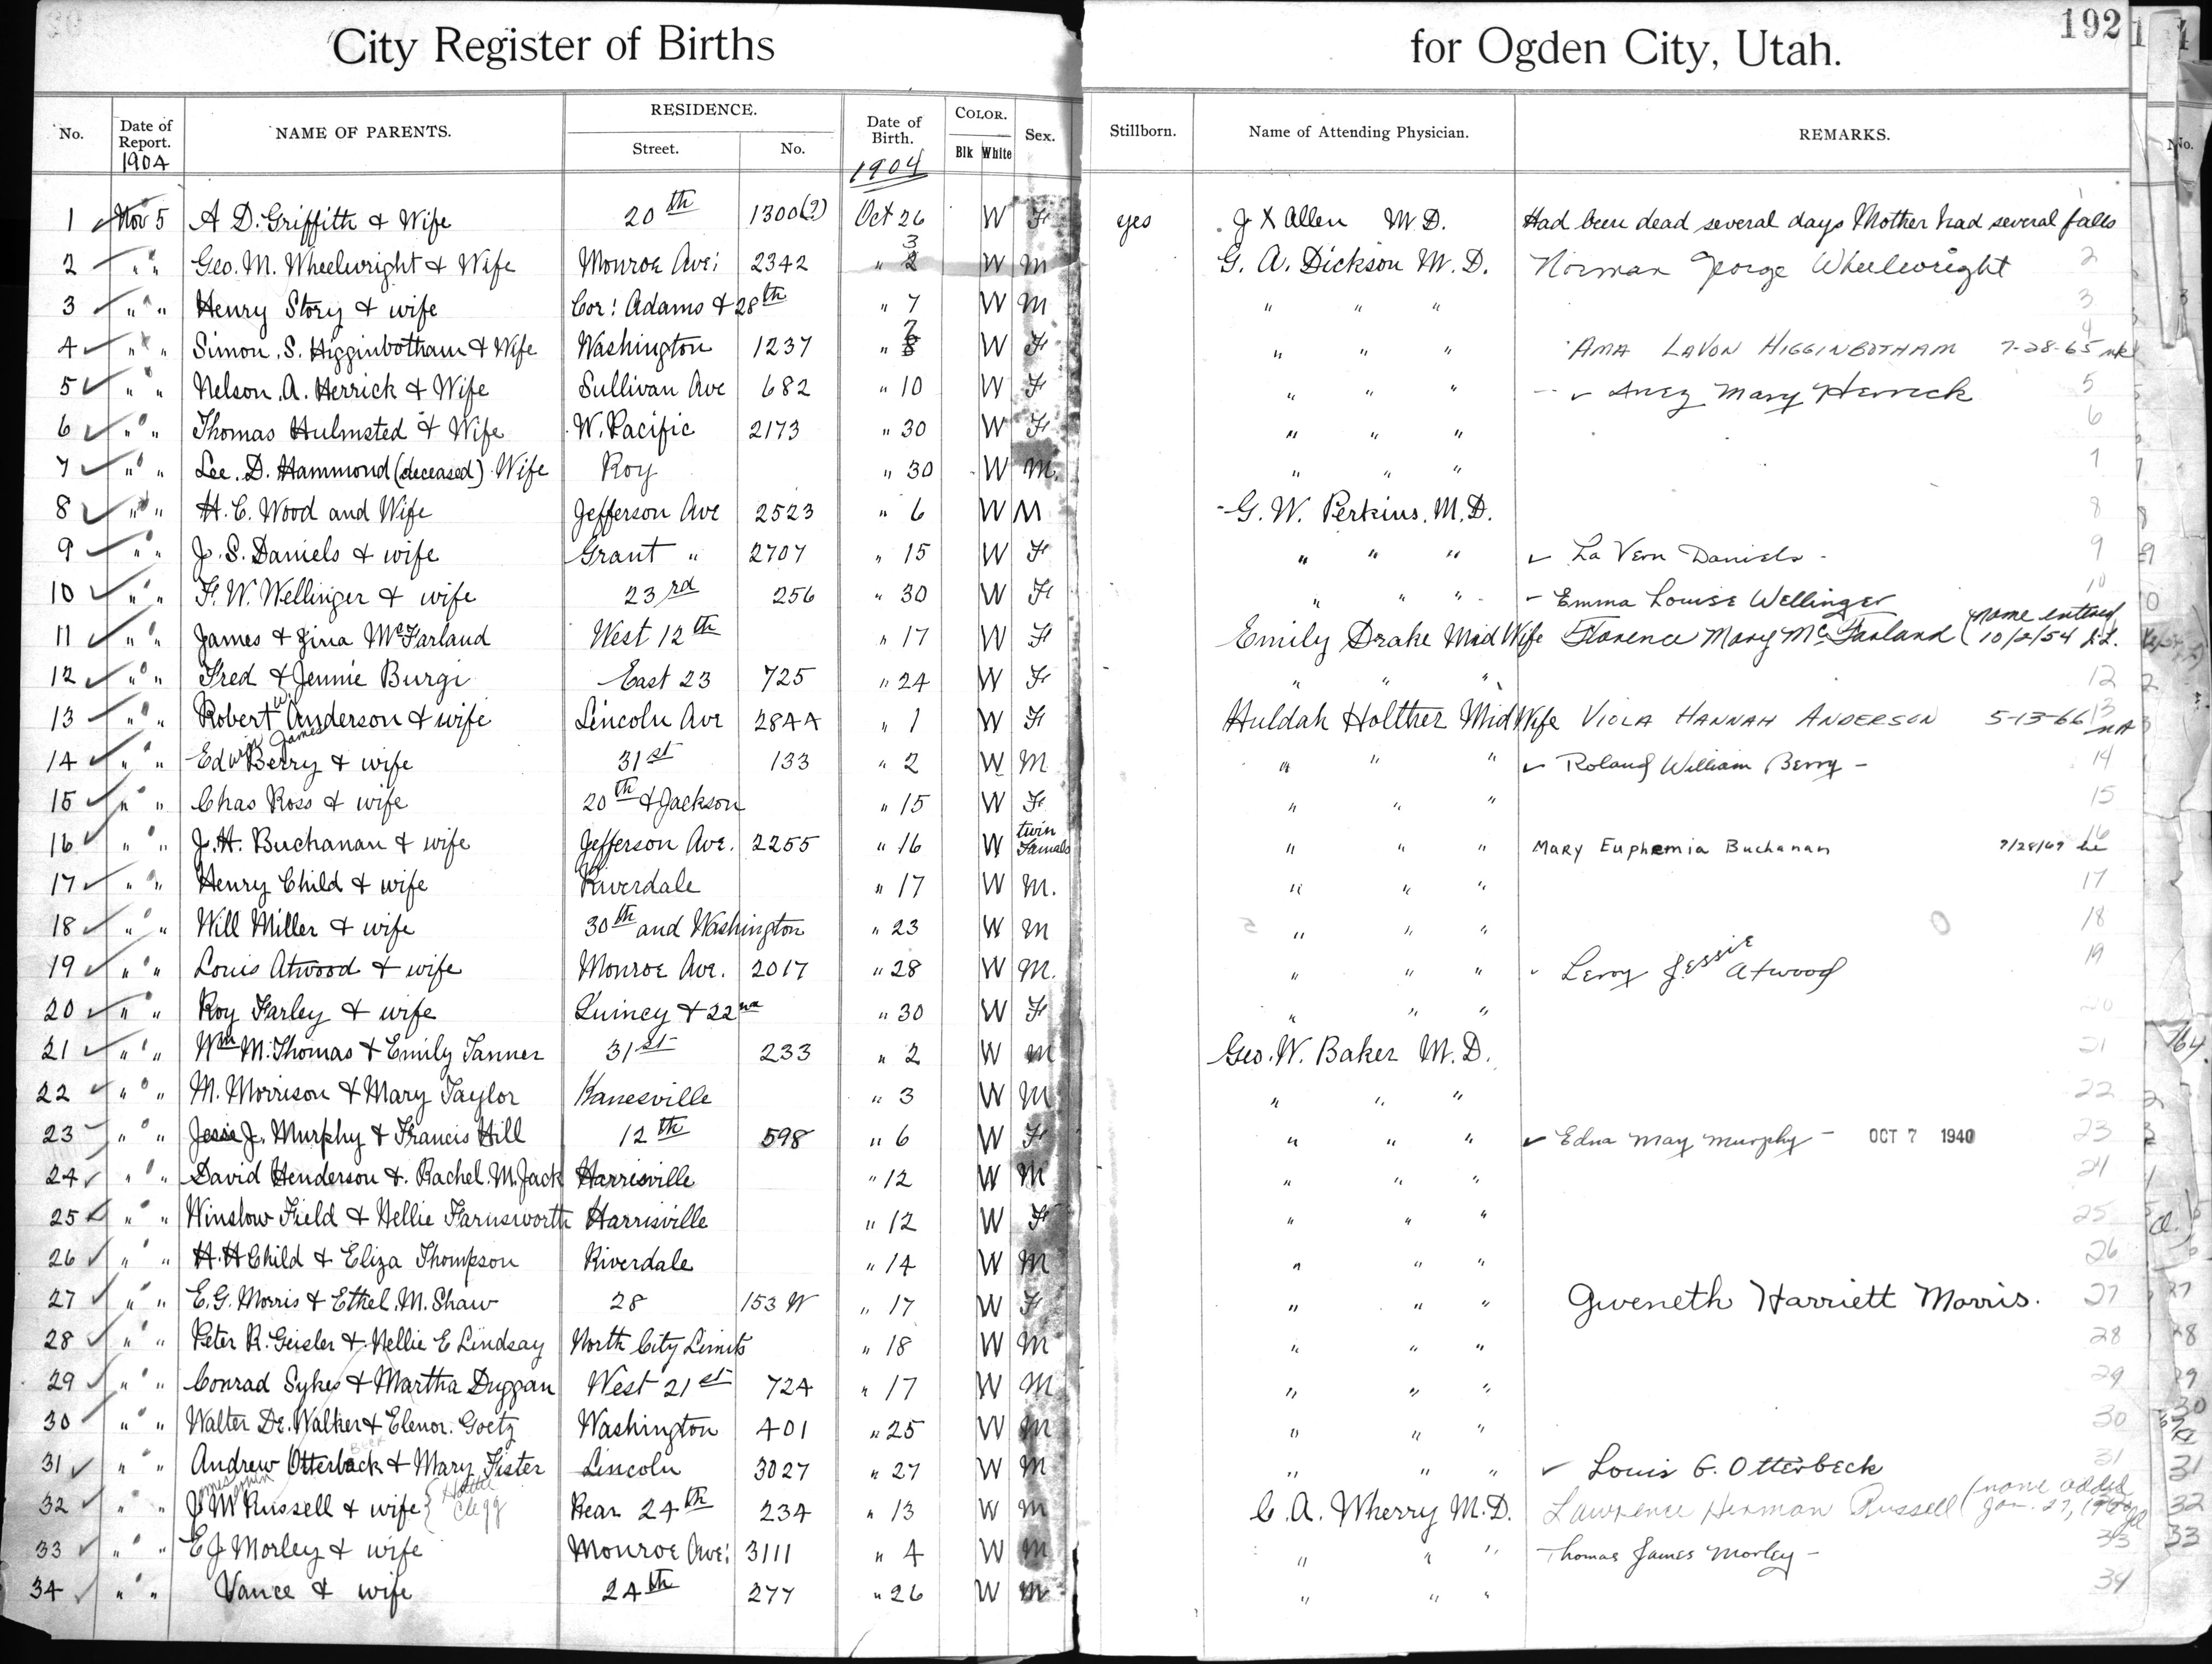 City Register of Births for Ogden City, Utah. 192
No. Date of Report. NAME OF PARENTS. RESIDENCE. Street. No. Date of Birth. COLOR. Blk White Sex. Stillborn. Name of Attending Physician. REMARKS.
1904 1904
1 Nov 5 A D. Griffith & Wife 20th 1300(?) Oct 26 W F yes J X Allen M.D. Had been dead several days Mother had several falls
2 " " Geo. M. Wheelwright & Wife Monroe Ave: 2342 " 3 W M G. A. Dickson M.D. Norman George Wheelwright 2
3 " " Henry Story & wife Cor: Adams & 28th " 7 W M " " " 3
4 " " Simon. S. Higginbotham & Wife Washington 1237 " 7 W F " " " AMA LAVON HIGGINBOTHAM 7-28-65 4
5 " " Nelson. A. Herrick & Wife Sullivan Ave 682 " 10 W F " " " Mary Herrick 5
6 " " Thomas Hulmsted & Wife W. Pacific 2173 " 30 W F " " " 6
7 " " Lee. D. Hammond (deceased) Wife Roy " 30 W M. " " " 7
8 " " H. C. Wood and Wife Jefferson Ave 2523 " 6 W M G. W. Perkins. M.D. 8
9 " " J. S. Daniels & wife Grant " 2707 " 15 W F " " " La Vern Daniels - 9
10 " " F. W. Wellinger & wife 23rd 256 " 30 W F " " " Emma Louise Wellinger 10
11 " " James & Jina McFarland West 12th " 17 W F Emily Drake Mid Wife Florence Mary McFarland (Name entered 10/2/54
12 " " Fred & Jennie Burgi East 23 725 " 24 W F " " " 12
13 " " Robert W. Anderson & wife Lincoln Ave 2844 " 1 W F Huldah Holther Mid Wife VIOLA HANNAH ANDERSON 5-13-66 13
14 " " Edwin James Berry & wife 31st 133 " 2 W M " " " Roland William Berry - 14
15 " " Chas Ross & wife 20th & Jackson " 15 W F " " " 15
16 " " J. H. Buchanan & wife Jefferson Ave. 2255 " 16 W twin Female " " " Mary Euphemia Buchanan 16
17 " " Henry Child & wife Riverdale " 17 W M. " " " 17
18 " " Will Miller & wife 30th and Washington " 23 W M " " " 18
19 " " Louis Atwood & wife Monroe Ave. 2017 " 28 W M. " " " Leroy Jessie Atwood 19
20 " " Roy Farley & wife Quincy & 22nd " 30 W F " " " 20
21 " " Wm M. Thomas & Emily Tanner 31st 233 " 2 W M Geo. W. Baker M.D. 21
22 " " M. Morrison & Mary Taylor Kanesville " 3 W M " " " 22
23 " " Jessie J. Murphy & Francis Hill 12th 598 " 6 W F " " " Edna May Murphy - OCT 7 1940 23
24 " " David Henderson & Rachel. M. Jack Harrisville " 12 W M " " " 24
25 " " Winslow Field & Nellie Farnsworth Harrisville " 12 W F " " " 25
26 " " H. H Child & Eliza Thompson Riverdale " 14 W M " " " 26
27 " " E. G. Morris & Ethel. M. Shaw 28 153 W " 17 W F " " " Gweneth Harriett Morris. 27
28 " " Peter R. Geisler & Nellie E Lindsay North City Limits " 18 W M " " " 28
29 " " Conrad Sykes & Martha Duggan West 21st 724 " 17 W M " " " 29
30 " " Walter De. Walker & Elenor. Goetz Washington 401 " 25 W M " " " 30
31 " " Andrew Otterback & Mary Fister Lincoln 3027 " 27 W M " " " Louis G. Otterbeck 31
32 " " J M Russell & wife Clegg Rear 24th 234 " 13 W M C. A. Wherry M.D. Lawrence Herman Russell (name added Jan. 27, 32
33 " " E J Morley & wife Monroe Ave: 3111 " 4 W M " " " Thomas James Morley - 33
34 " " Vance & wife 24th 277 " 26 W M " " " 34